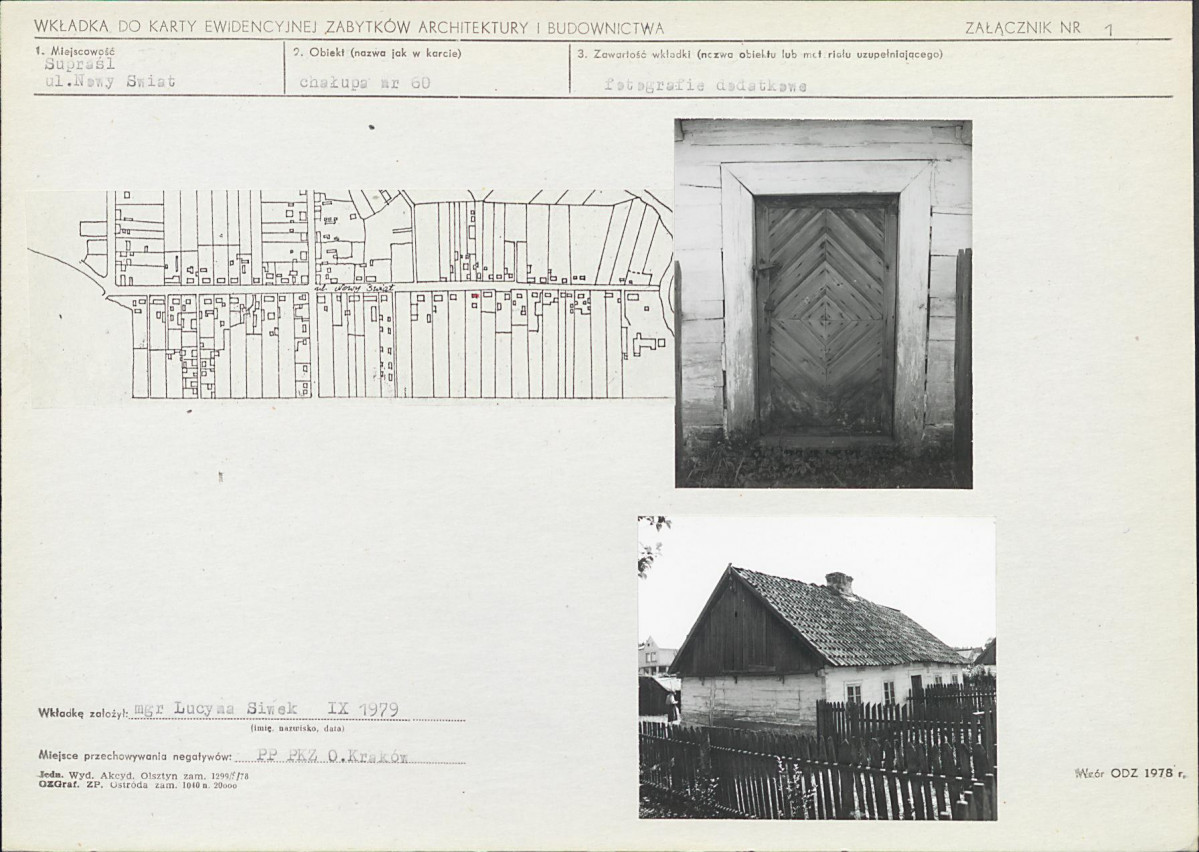 WKŁADKA DO KARTY EWIDENCYJNEJ ZABYTKÓW ARCHITEKTURY I BUDOWNICTWA
ZAŁĄCZNIK NR 1
1. Miejscowość
Supraśl
ul.Nowy Świat
2. Obiekt (nazwa jak w karcie)
chałupa nr 60
3. Zawartość wkładki (nazwa obiektu lub materiału uzupełniającego)
fotografie dodatkowe
ul. Nowy Świat
Wkładkę założył: mgr Lucyna Siwek IX 1979
(imię, nazwisko, data)
Miejsce przechowywania negatywów: PP PKZ O.Kraków
Jedn. Wyd. Akcyd. Olsztyn zam. 1299/f/78
OZGraf. ZP. Ostróda zam. 1040 n. 20000
Wzór ODZ 1978 r.